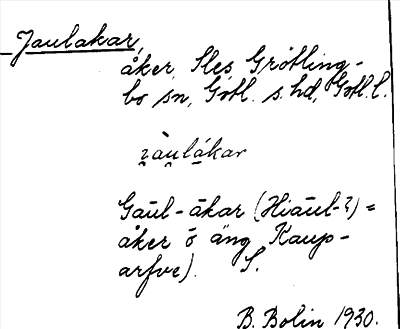 Jaulakar,
åker, Sles, Grötling-
bo sn, Gotl. s. hd, Gotl. l.
Gaūl-ākar (Hiaūl-?) =
åker ō äng Kaup-
arfve). S.
B. Bolin 1930.